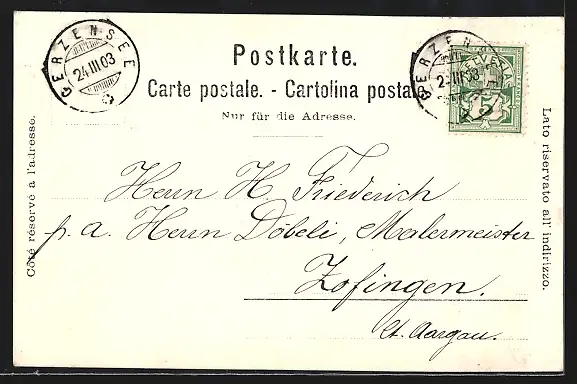 GERZENSEE
24.III.03
Postkarte.
Carte postale. - Cartolina postale
Nur für die Adresse.
GERZENSEE
HELVETIA
5
Côté réservé à l'adresse.
Lato riservato all' indirizzo.
Herrn H. Friederich
p. a. Herrn Döbeli, Malermeister
Zofingen.
Ct. Aargau.